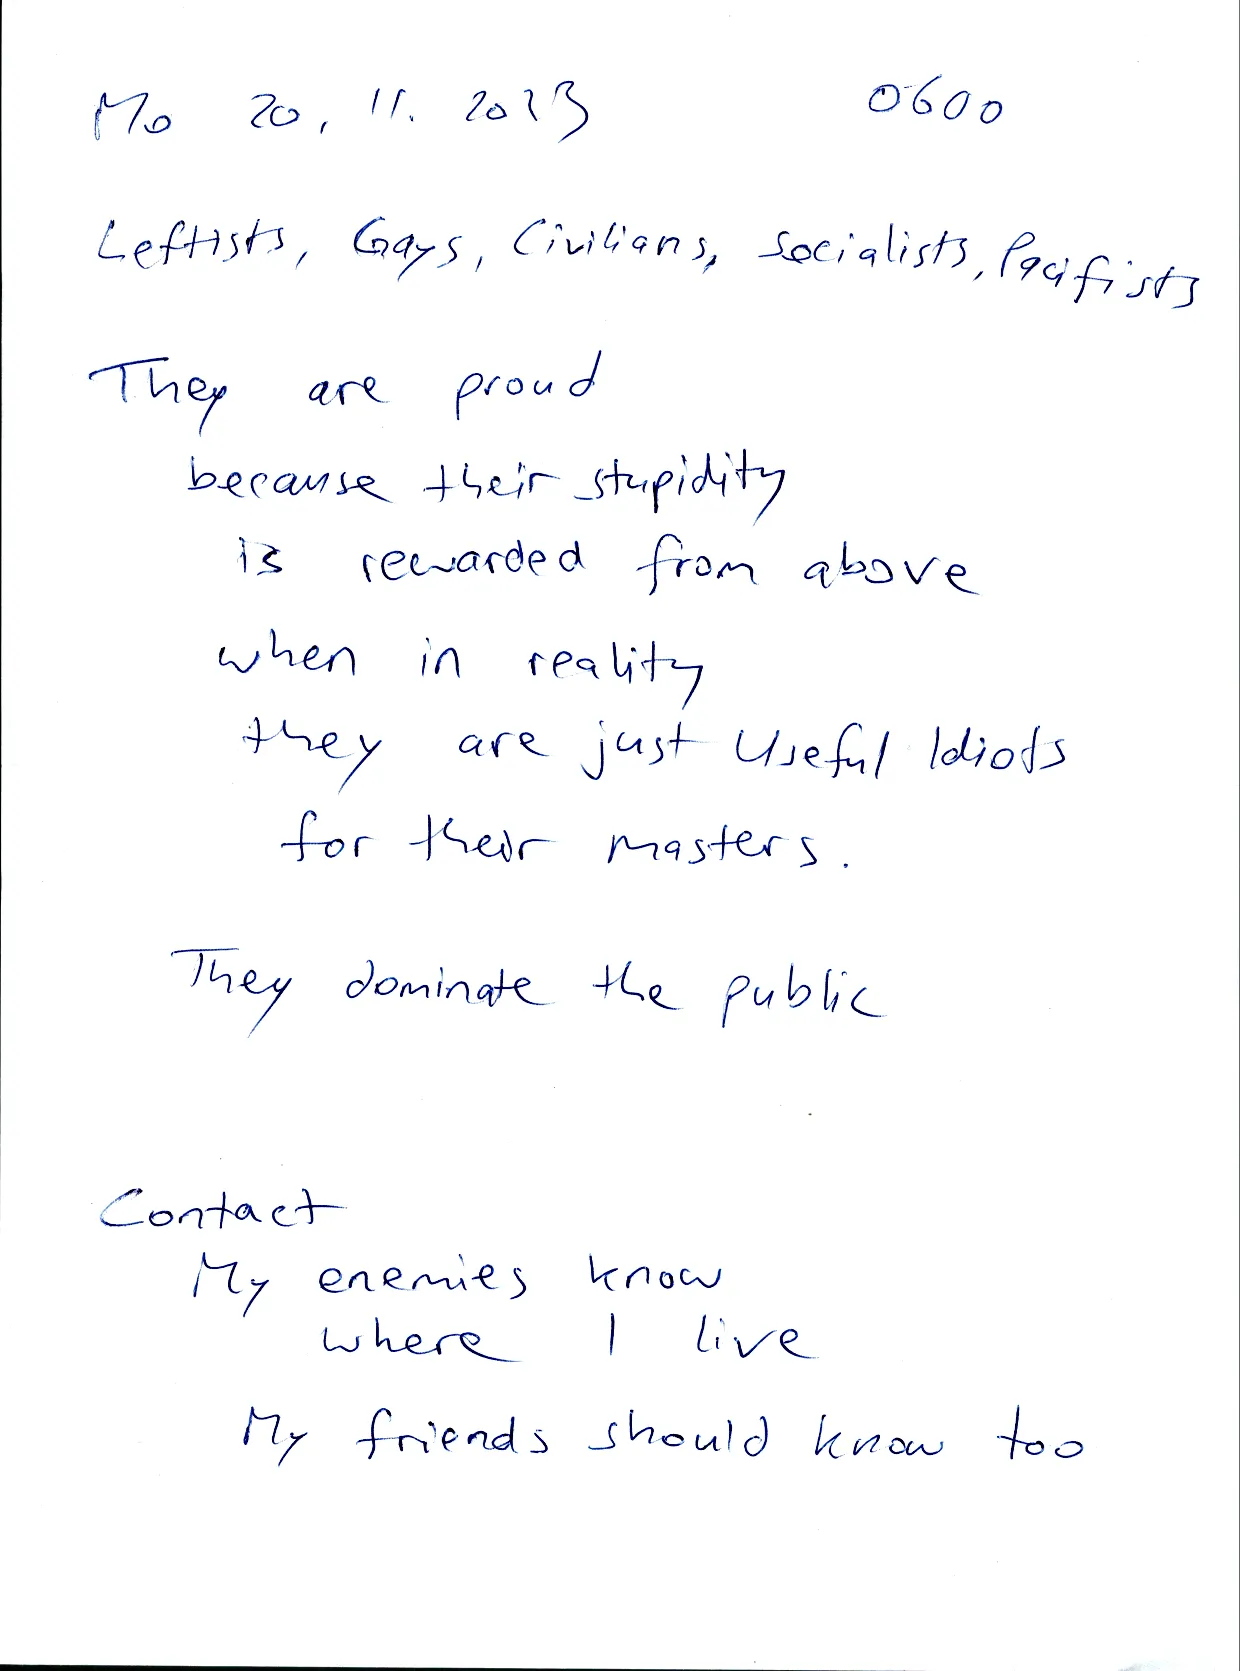 Mo 20. 11. 2023 0600
Leftists, Gays, Civilians, Socialists, Pacifists
They are proud
because their stupidity
is rewarded from above
when in reality
they are just Useful Idiots
for their masters.
They dominate the public
Contact
My enemies know
where I live
My friends should know too